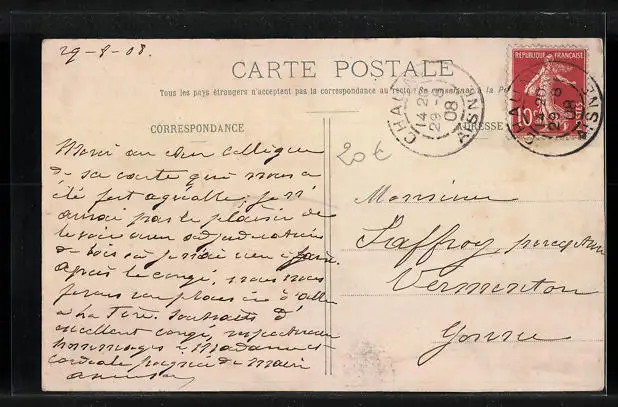 29-8-08.
CARTE POSTALE
Tous les pays étrangers n'acceptent pas la correspondance au recto. Se renseigner à la Po
CORRESPONDANCE
ADRESSE
REPUBLIQUE FRANÇAISE
10c
POSTES
CHAUNY
14 20
29 -8
08
AISNE
CHAUNY
14 20
29 8
08
AISNE
20 €
Merci au cher collègue
de sa carte qui nous a
été fort agréable, je n'
aurai pas le plaisir de
le voir aux adjudications
de bois
après le congé, nous nous
ferons un plaisir d'aller
à La Fère. Souhaits d'
excellent congé, respectueux
hommages à Madame et
cordiale poignée de main
Monsieur
Jaffroy, percepteur
Vermenton
Yonne